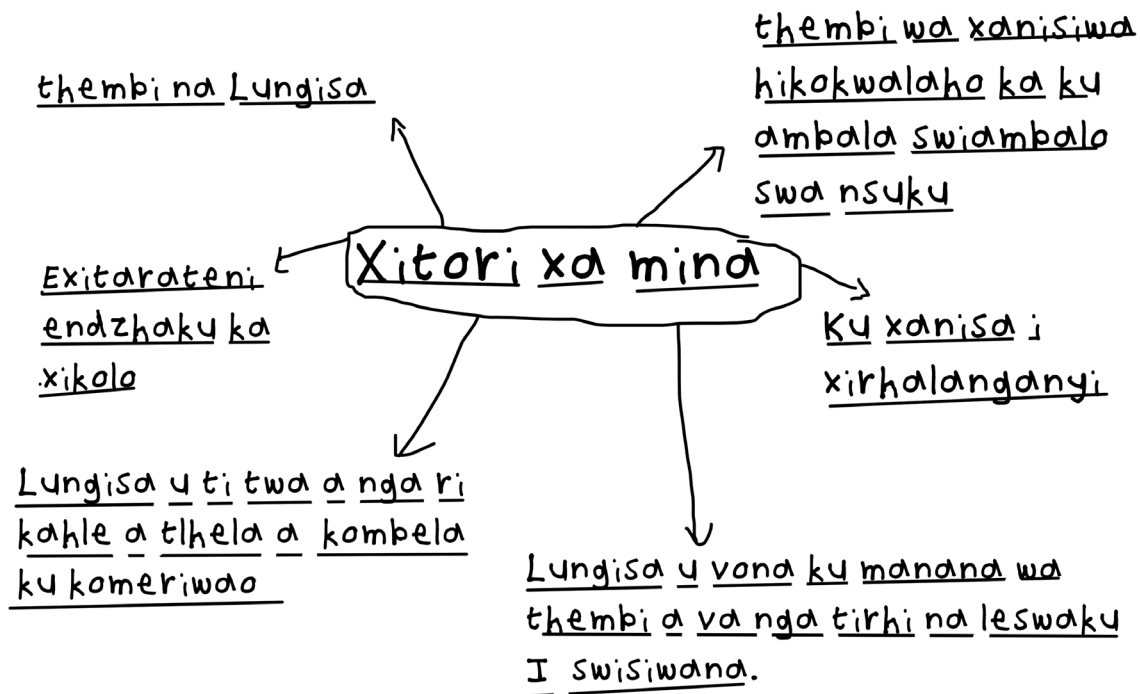 thembi na Lungisa
thembi wa xanisiwa
hikokwalaho ka ku
ambala swiambalo
swa nsuku
Xitori xa mina
Exitarateni
endzhaku ka
xikolo
Ku xanisa i
xirhalanganyi
Lungisa u ti twa a nga ri
kahle a tlhela a kombela
ku komeriwao
Lungisa u vona ku manana wa
thembi a va nga tirhi na leswaku
I swisiwana.